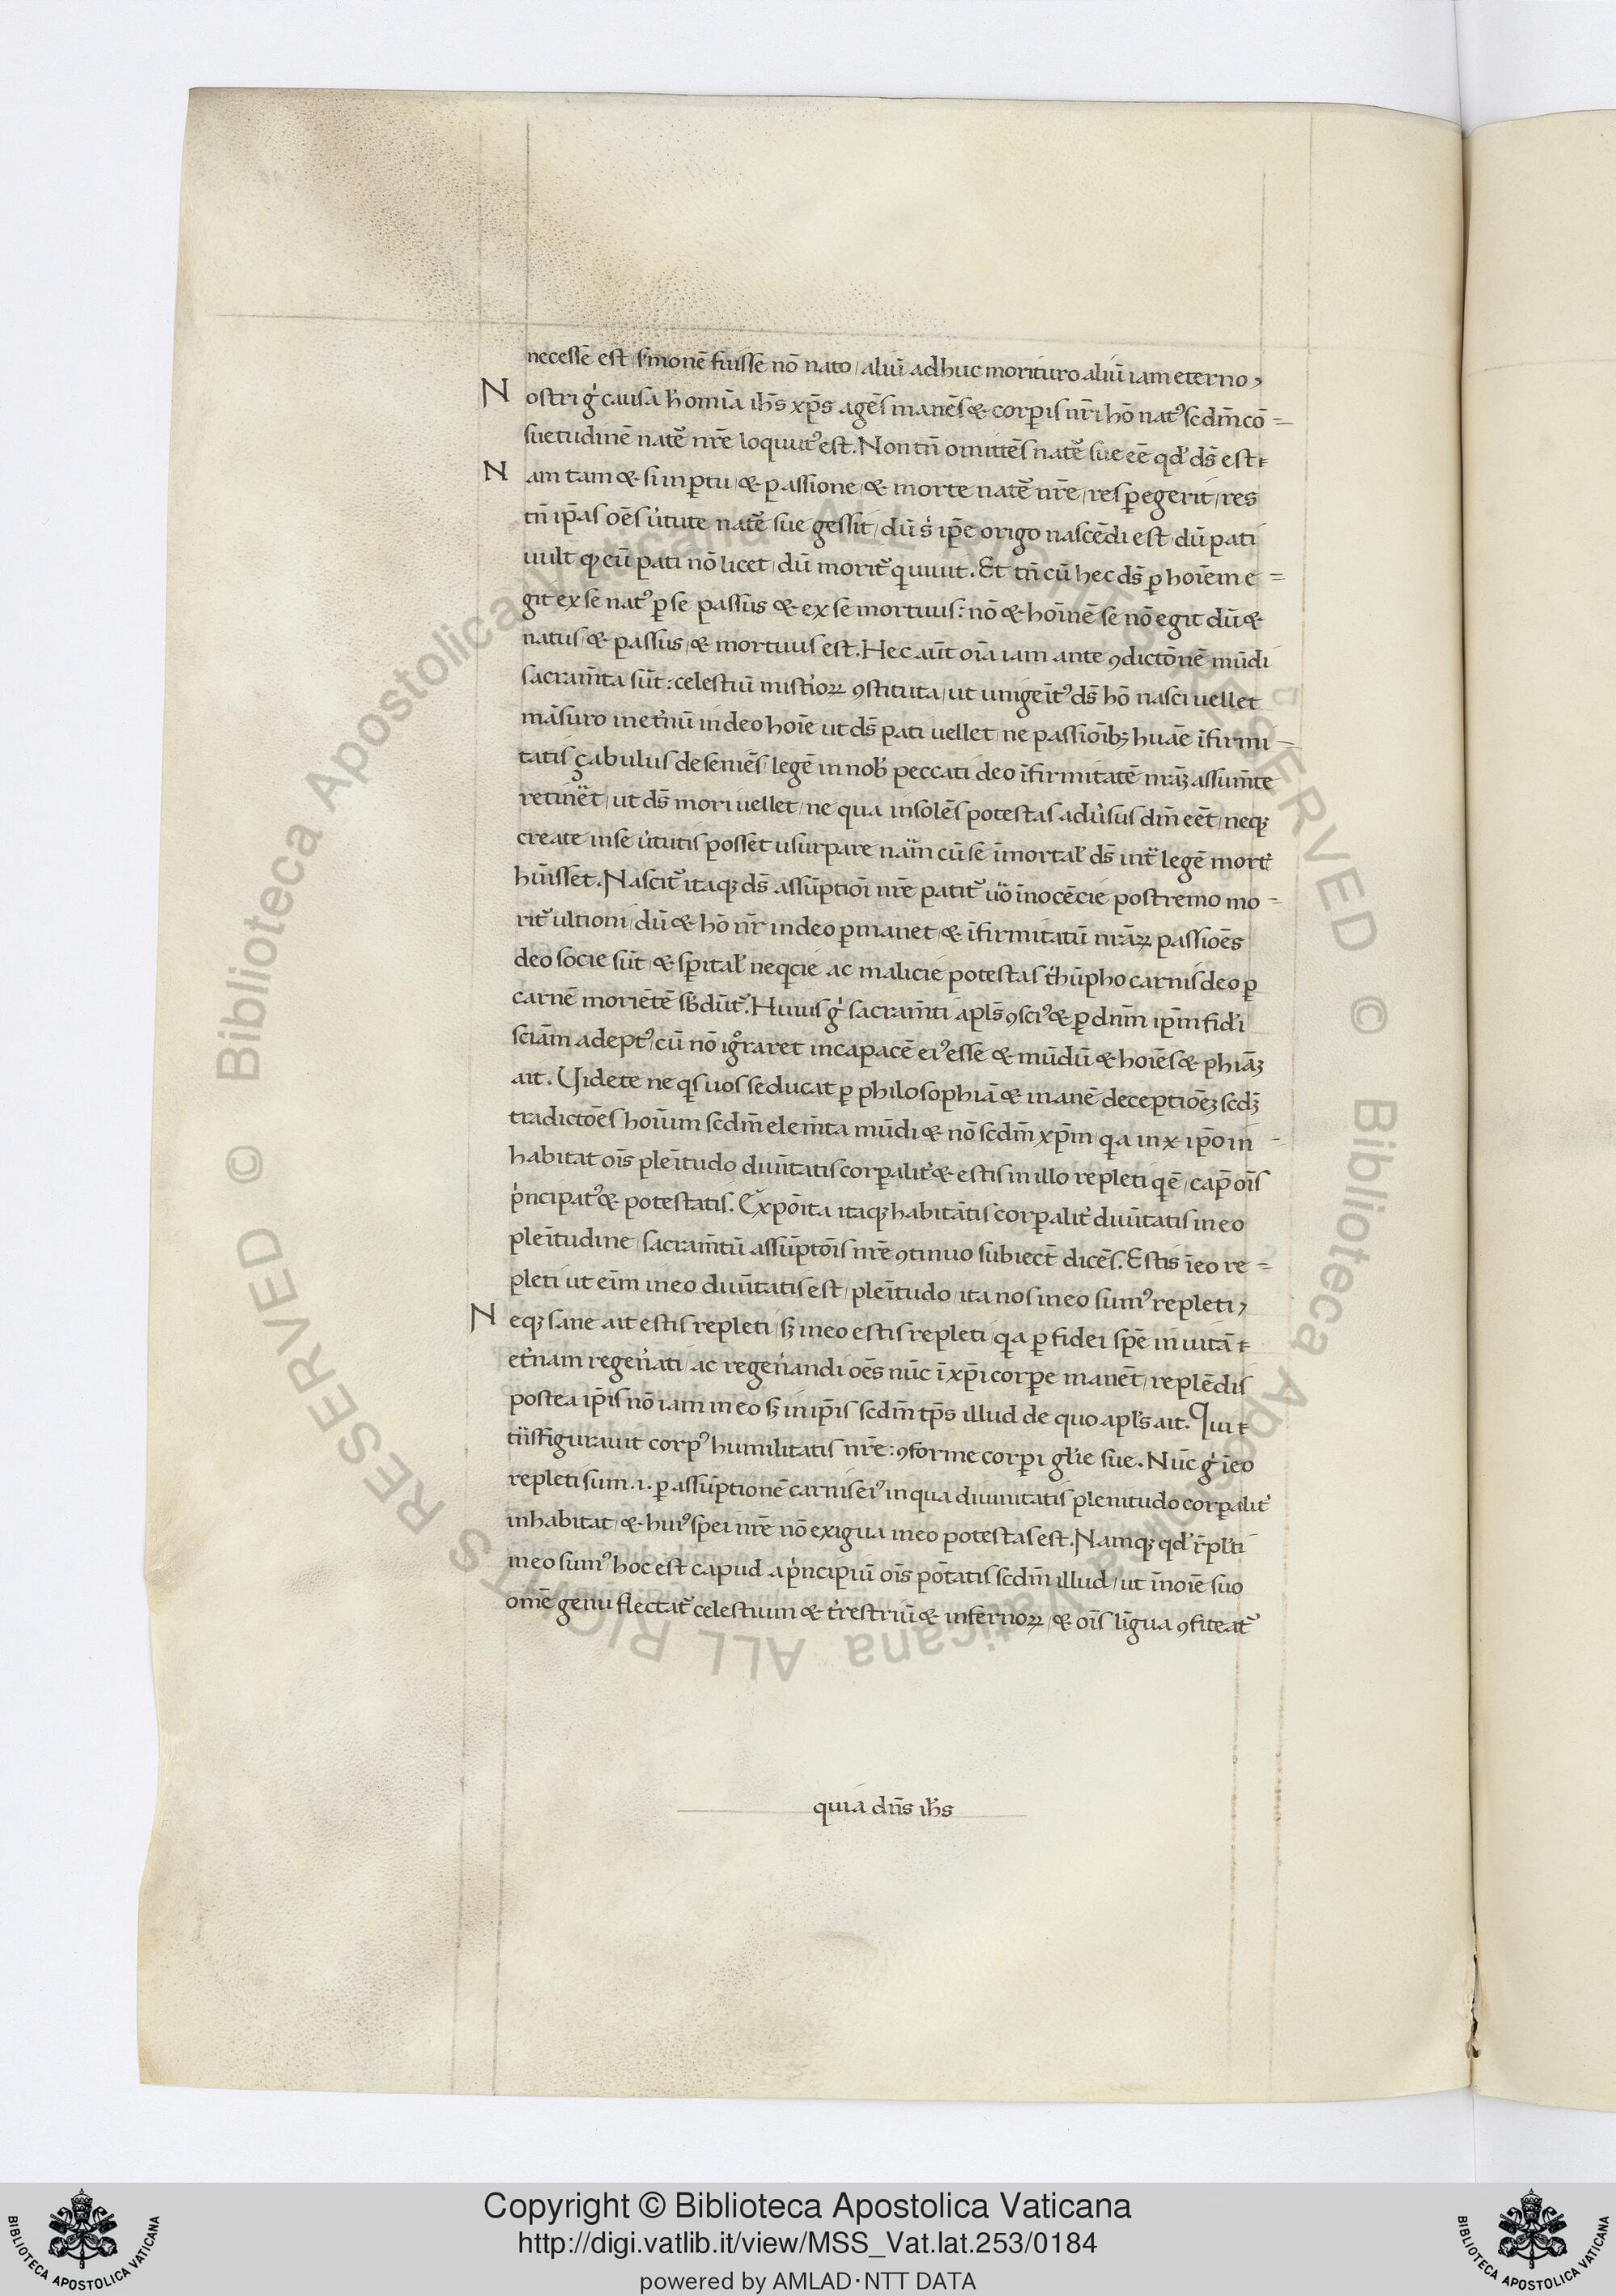 necessē est sꝰmonē fuisse nō nato, aliū adhuc morituro aliū iam eterno,
Nostri gͥ causa h' omĩa ihs̄ xp̄s agēs manēs & corꝑis nr̄i hō natꝰ scdm̄ cō=
suetudinē nat᷑e nr̄e loquutꝰ est. Non tn̄ omittēs nat᷑e sue eē qd' ds̄ est
Nam tam & si in ꝑtu, & passione, & morte nat᷑e nr̄e, res ꝑegerit, res
tn̄ ip̄as oēs ủtute nat᷑e sue gessit, dū sͥ ip̄e origo nascēdi est, dū pati
uult qꝫ cū pati nō licet, dū morit᷑ q uiuit. Et tn̄ cū hec ds̄ ꝑ hoīem e=
git ex se natꝰ ꝑ se passus & ex se mortuus: nō & hoīnē se nō egit dū &
natus, & passus, & mortuus est. Hec aūt oīa iam ante ꝯdictōnē mūdi
sacram̄ta sūt: celestiū mistioꝝ ꝯstituta, ut unigeīt'ꝰ ds̄ hō nasci uellet
māsuro in et'nū in deo hoīe ut ds̄ pati uellet, ne passioībꝫ huāe īfirmi=
tatis çabulus deseniēs, legē in nob' peccati deo īfirmitatē nrāꝫ assum̄te
retin᷑et, ut ds̄ mori uellet, ne qua insolēs potestas adủsus dm̄ eēt, neqꝫ
create in se ủtutis possēt usurpare nam̄ cū se īmortal' ds̄ int᷑ legē mort'
hūisset. Nascit᷑ itaqꝫ ds̄ assūptioī nr̄e patit᷑ uō īnocēcie postremo mo=
rit᷑ ultioni, dū & hō nr̄ in deo ꝑmanet, & īfirmitatū nrāꝝ passiōes
deo socie sūt, & spīital' neqcie ac malicie potestas t'hūpho carnis deo ꝑ
carnē moriētē sb'dūt᷑. Huius gͥ sacram̄ti apls̄ ꝯsciꝰ & ꝑ dnm̄ ip̄m fid'i
sciām adeptꝰ, cū nō igͦraret incapacē eiꝰ esse & mūdū & hoīes & phiāꝫ
ait. Uidete ne qs uos seducat ꝑ philosophiā & inanē deceptiōeꝫ scdꝫ
tradictōes hoīum scdm̄ elem̄ta mūdi & nō scdm̄ xp̄m, qa in x ip̄o in-
habitat oīs pleītudo diuītatis corꝑalit' & estis in illo repleti qē, cap̄ oīs
pͥncipatꝰ & potestatis. Expōita itaqꝫ habitātis corꝑalit' diuītatis in eo
pleītudine, sacram̄tū assūptōis nr̄e ꝯtinuo subiect̄ dicēs. Estis ī eo re=
pleti ut eīm in eo diuītatis est, pleītudo, ita nos in eo sumꝰ repleti,
Neqꝫ sane ait estis repleti, sꝫ in eo estis repleti, qa ꝑ fidei spē in uitā
et'nam regen'ati, ac regen'andi oēs nūc ī xp̄i corꝑe manēt, replēdis
postea ip̄is nō iam in eo sꝫ in ip̄is scdm̄ tp̄s illud de quo apl's ait. Qui
tn̄sfigurauit corpꝰ humilitatis nr̄e: ꝯforme corꝑi gl'ie sue. Nūc gͥ ī eo
repleti sum .i. ꝑ assūptionē carnis eiꝰ in qua diuinitatis plenitudo corꝑalit'
inhabitat, & huiꝰ spei nr̄e nō exigua in eo potestas est. Namqꝫ qd' r̄pl'ti
in eo sumꝰ hoc est capud, a pͥncipiū oīs pōtatis scdm̄ illud, ut īnoīe suo
omē genu flectat᷑ celestium & t'restriū & infernoꝝ, & oīs lī̄gua ꝯfiteat᷑
quia dn̄s ih̄s
Copyright © Biblioteca Apostolica Vaticana
http://digi.vatlib.it/view/MSS_Vat.lat.253/0184
powered by AMLAD·NTT DATA